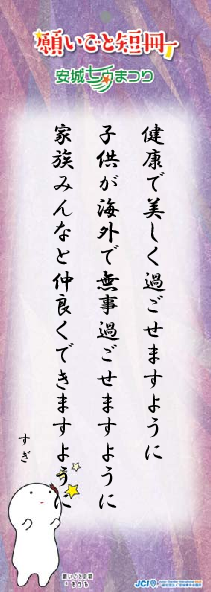 願いごと短冊
安城七夕まつり
健康で美しく過ごせますように
子供が海外で無事過ごせますように
家族みんなと仲良くできますように
すぎ
JCI